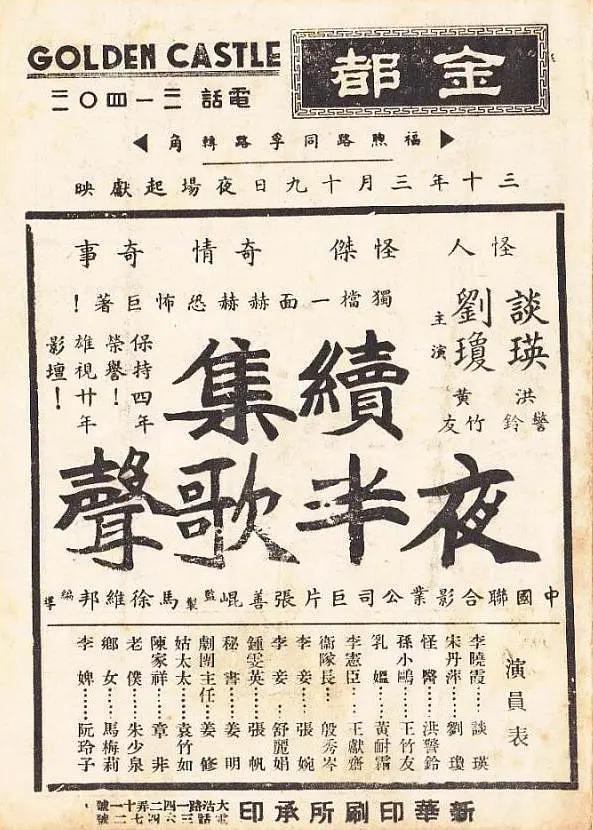 GOLDEN CASTLE
金都
電話 三一四〇三
福煦路同孚路轉角
三十年三月十九日夜場起獻映
怪人 怪傑 奇情 奇事
獨檔一面赫赫恐怖巨著！
談瑛
劉瓊
主演
洪警鈴
黃竹友
保持四年
榮譽！
雄視廿年
影壇！
續集
夜半歌聲
中國聯合影業公司巨片張善琨監製馬徐維邦編導
演員表
李曉霞 談瑛
宋丹萍 劉瓊
怪醫 洪警鈴
孫小鷗 王竹友
乳媼 黃耐霜
李憲臣 王獻齋
衛隊長 殷秀岑
李妾 張婉
李妾 舒麗娟
鍾雯英 張帆
秘書 姜明
劇團主任 姜修
姑太太 袁竹如
陳家祥 章非
老僕 朱少泉
鄉女 馬梅莉
李婢 阮玲子
新華印刷所承印
大沽路一四四弄十一號
電話三六二七二號